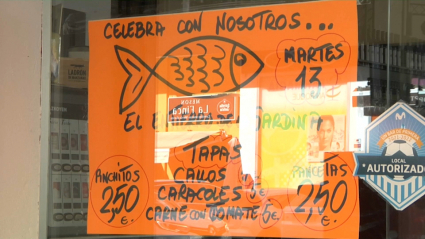 CELEBRA CON NOSOTROS....
MARTES
13
EL ENTIERRO DE LA SARDINA
TAPAS
CALLOS
CARACOLES
CARNE CON TOMATE 5€
ANCHITOS
2,50
€.
PANCETAS
2,50
€.
LOCAL
AUTORIZADO